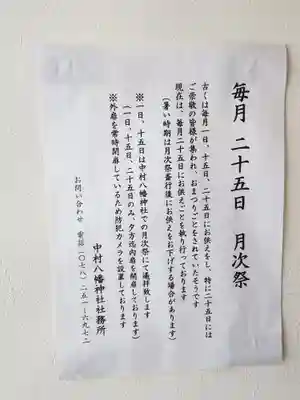 毎月 二十五日 月次祭
古くは毎月一日、十五日、二十五日にお供えをし、特に二十五日には
ご崇敬の皆様が集われ、おまつりごとをされていたそうです
現在は、毎月二十五日にお供えごとを執り行っております
(暑い時期は月次祭斎行後にお供えをお下げする場合があります)
※一日、十五日は中村八幡神社での月次祭にて遥拝致します
(一日、十五日、二十五日のみ、夕方迄内扉を開扉しております)
※外扉を常時開扉しているため防犯カメラを設置しております
中村八幡神社社務所
お問い合わせ 電話(〇七八)二五一-六九七二